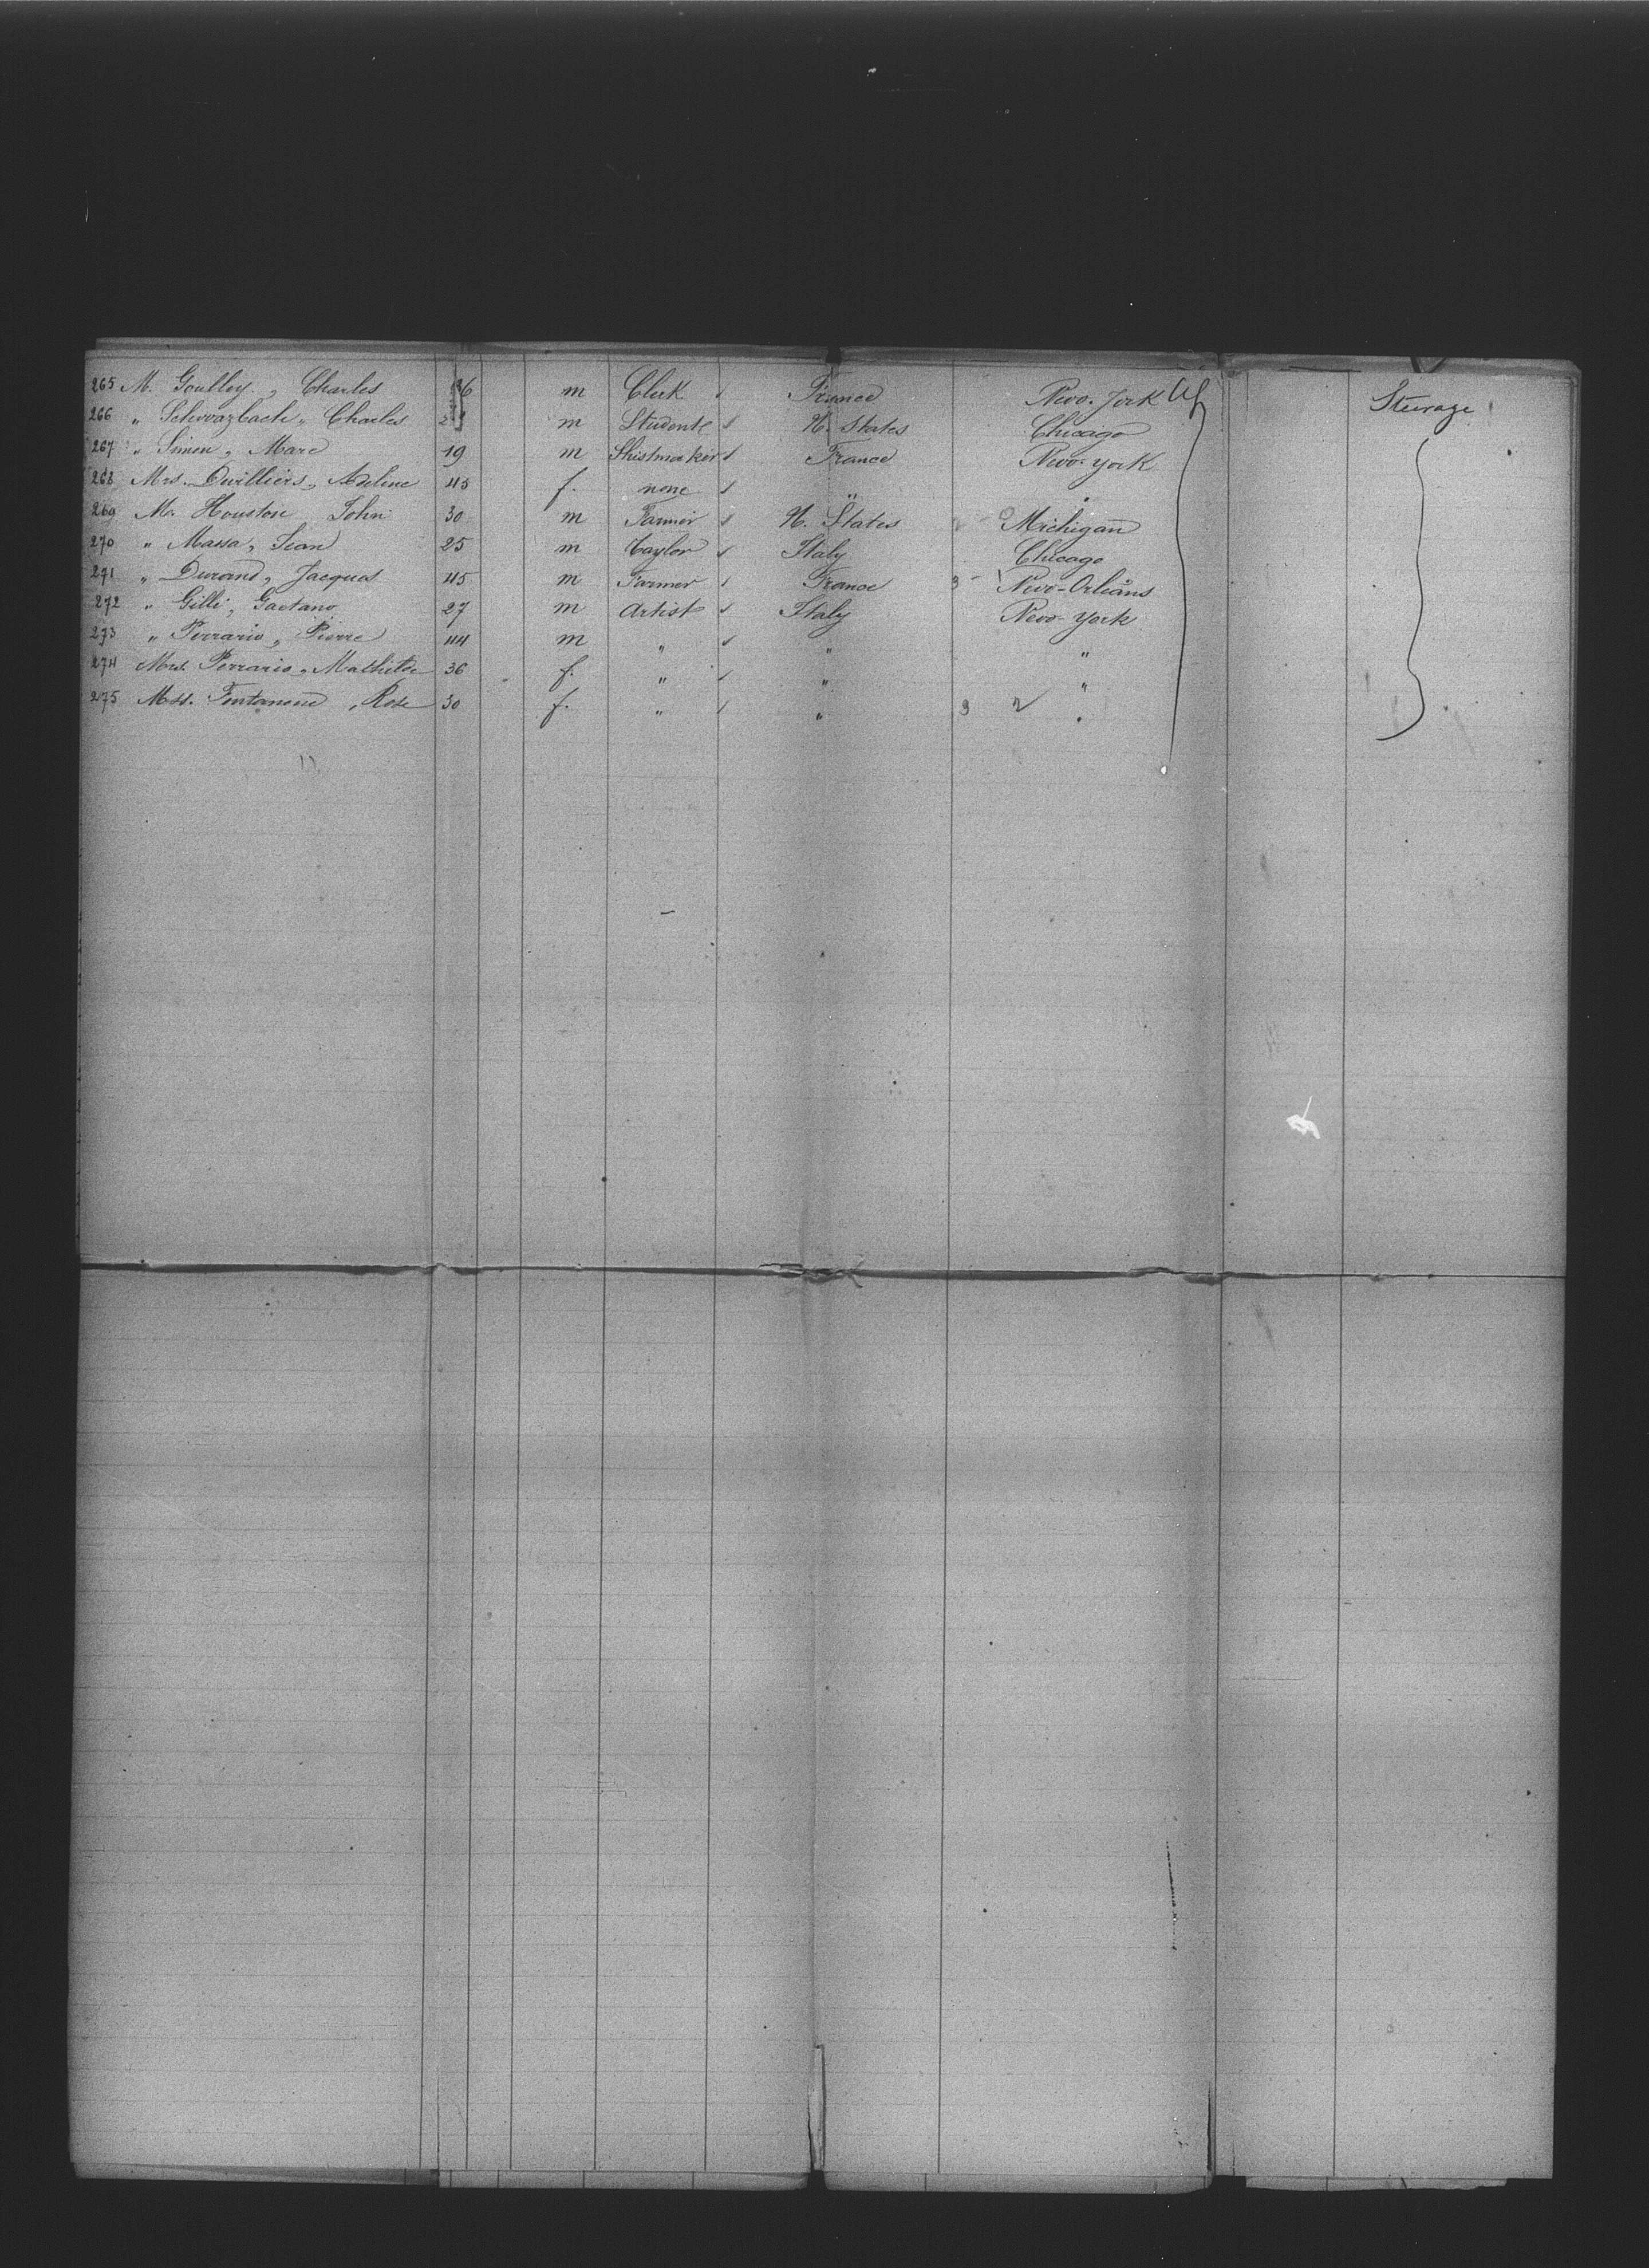 265 M. Goulley, Charles 26 m Clerk France New-York Steerage
266 " Schwarzbach, Charles m Student U. States Chicago
267 " Simon, Marc 19 m Shistmaker France New-york
268 Mrs. Duvilliers, Adeline 45 f. none "
269 M. Houston John 30 m Farmer U. States Michigan
270 " Massa, Jean 25 m Taylor Italy Chicago
271 " Durand, Jacques 45 m Farmer France 3 New-Orleans
272 " Gilli, Gaetano 27 m Artist Italy New-York
273 " Ferrario, Pierre 44 m " " "
274 Mrs. Ferrario, Mathilde 36 f. " " "
275 Mss. Fontanone, Rose 30 f. " " 3 2 "